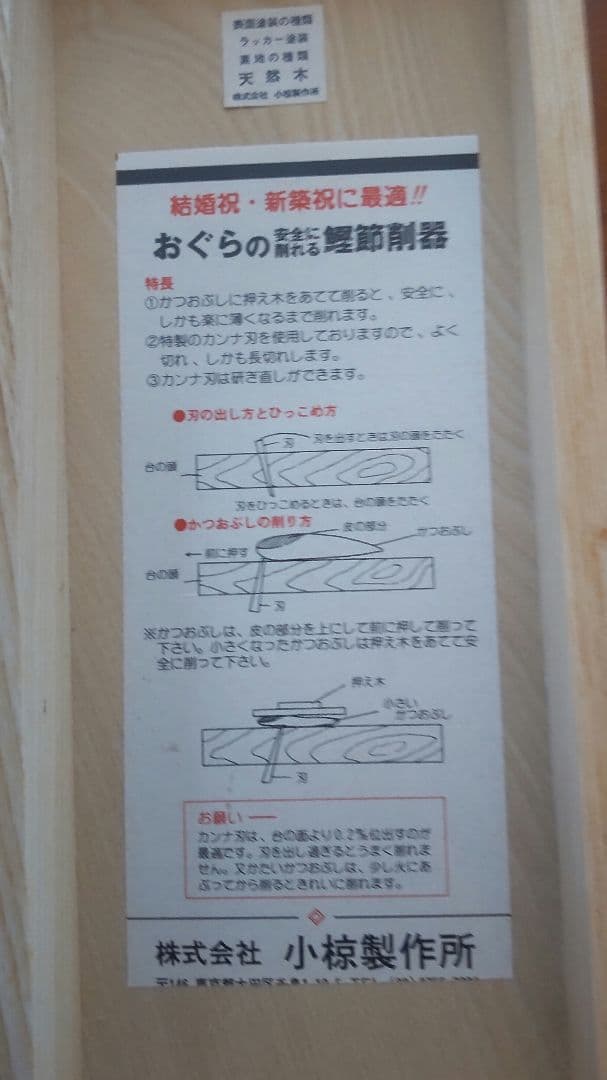 表面塗装の種類
ラッカー塗装
素地の種類
天然木
株式会社 小椋製作所
結婚祝・新築祝に最適!!
おぐらの安全に削れる鰹節削器
特長
①かつおぶしに押え木をあてて削ると、安全に、
しかも楽に薄くなるまで削れます。
②特製のカンナ刃を使用しておりますので、よく
切れ、しかも長切れします。
③カンナ刃は研ぎ直しができます。
●刃の出し方とひっこめ方
刃
刃を出すときは刃の頭をたたく
台の頭
刃をひっこめるときは、台の頭をたたく
●かつおぶしの削り方
皮の部分
かつおぶし
←前に押す
台の頭
刃
※かつおぶしは、皮の部分を上にして前に押して削って
下さい。小さくなったかつおぶしは押え木をあてて安
全に削って下さい。
押え木
小さい
かつおぶし
刃
お願い
カンナ刃は、台の面より0.2㍉位出すのが
最適です。刃を出し過ぎるとうまく削れま
せん。又かたいかつおぶしは、少し火にあ
ぶってから削るときれいに削れます。
株式会社 小椋製作所
〒146 東京都大田区